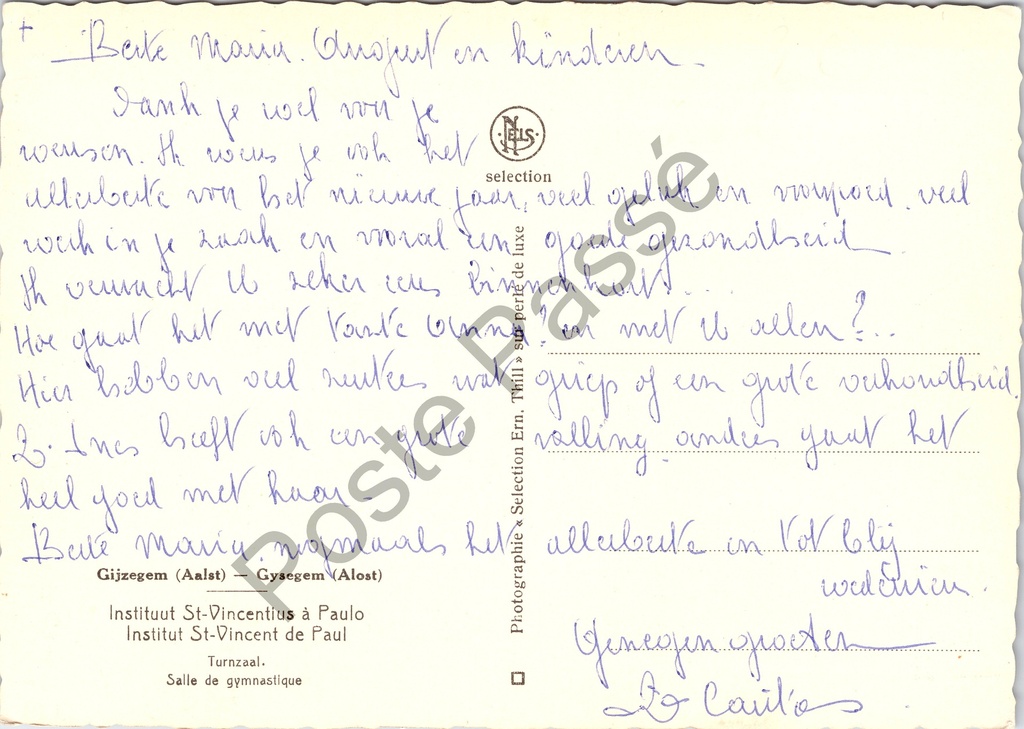 +
Beste Maria. August en kinderen
Dank je wel voor je
wensen. Ik wens je ook het
NELS
selection
allerbeste voor het nieuwe jaar, veel geluk en voorspoed. veel
werk in je zaak en vooral een goede gezondheid
Ik verwacht U zeker eens binnenkort...
Hoe gaat het met tante Anna? en met U allen?..
Hier hebben veel zusters wat griep of een grote verkoudheid.
Z. Ines heeft ook een grote valling anders gaat het
heel goed met haar -
Beste Maria, nogmaals het allerbeste en tot blij
wederzien.
Genegen groeten
Zr Caritas
Photographie « Selection Ern. Thill » sur perle de luxe
Gijzegem (Aalst) — Gysegem (Alost)
Instituut St-Vincentius à Paulo
Institut St-Vincent de Paul
Turnzaal.
Salle de gymnastique
Poste Passé